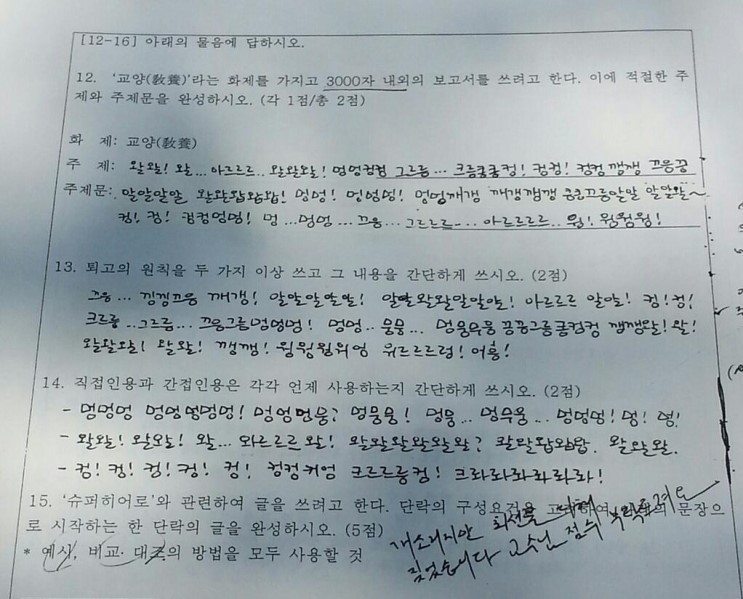 [12-16] 아래의 물음에 답하시오.
12. '교양(敎養)'라는 화제를 가지고 3000자 내외의 보고서를 쓰려고 한다. 이에 적절한 주
제와 주제문을 완성하시오. (각 1점/총 2점)
화 제: 교양(敎養)
주 제: 왈왈! 왈... 아르르르.. 왈왈왈! 멍멍컹컹 그르릉... 크르릉쿵쿵컹! 컹컹! 컹컹 깽깽 끄응끙
주제문: 알알알알 왈왈왈왈왈! 멍멍! 멍멍멍! 멍멍깨갱 깨갱깽깽 킁킁끄응알알 알알왈~
컹! 컹! 컹컹멍멍! 멍...멍멍... 끄응...그르르르... 아르르르르.. 웡! 웡웡웡!
13. 퇴고의 원칙을 두 가지 이상 쓰고 그 내용을 간단하게 쓰시오. (2점)
끄응... 낑낑끄응 깨갱! 알알알알알! 알알왈왈알알알! 아르르르 알알! 컹!컹!
크르릉..그르릉... 끄응그릉멍멍멍! 멍멍.. 문뭉... 멍뭉우뭉 끙끙그릉킁컹컹 깽깽왈! 왈!
왈왈왈! 왈왈! 깽깽! 웡웡웡워엉 위르르르렁! 어흥!
14. 직접인용과 간접인용은 각각 언제 사용하는지 간단하게 쓰시오. (2점)
- 멍멍멍 멍멍멍멍멍! 멍멍먼뭉? 멍뭉뭉! 멍뭉... 멍수뭉... 멍멍멍! 멍! 멍!
- 왈왈! 왈왈! 왈... 와르르르 왈! 왈왈왈왈왈왈? 왈왈왈왈왈. 왈왈왈.
- 컹! 컹! 컹! 컹! 컹! 컹컹커엉 크르르릉컹! 크롸롸롸롸롸롸!
15. '슈퍼히어로'와 관련하여 글을 쓰려고 한다. 단락의 구성요건을 문장으
로 시작하는 한 단락의 글을 완성하시오. (5점)
* 예시, 비교·대조의 방법을 모두 사용할 것
개소리지만 최선을 다해
짖었습니다 교수님 점수